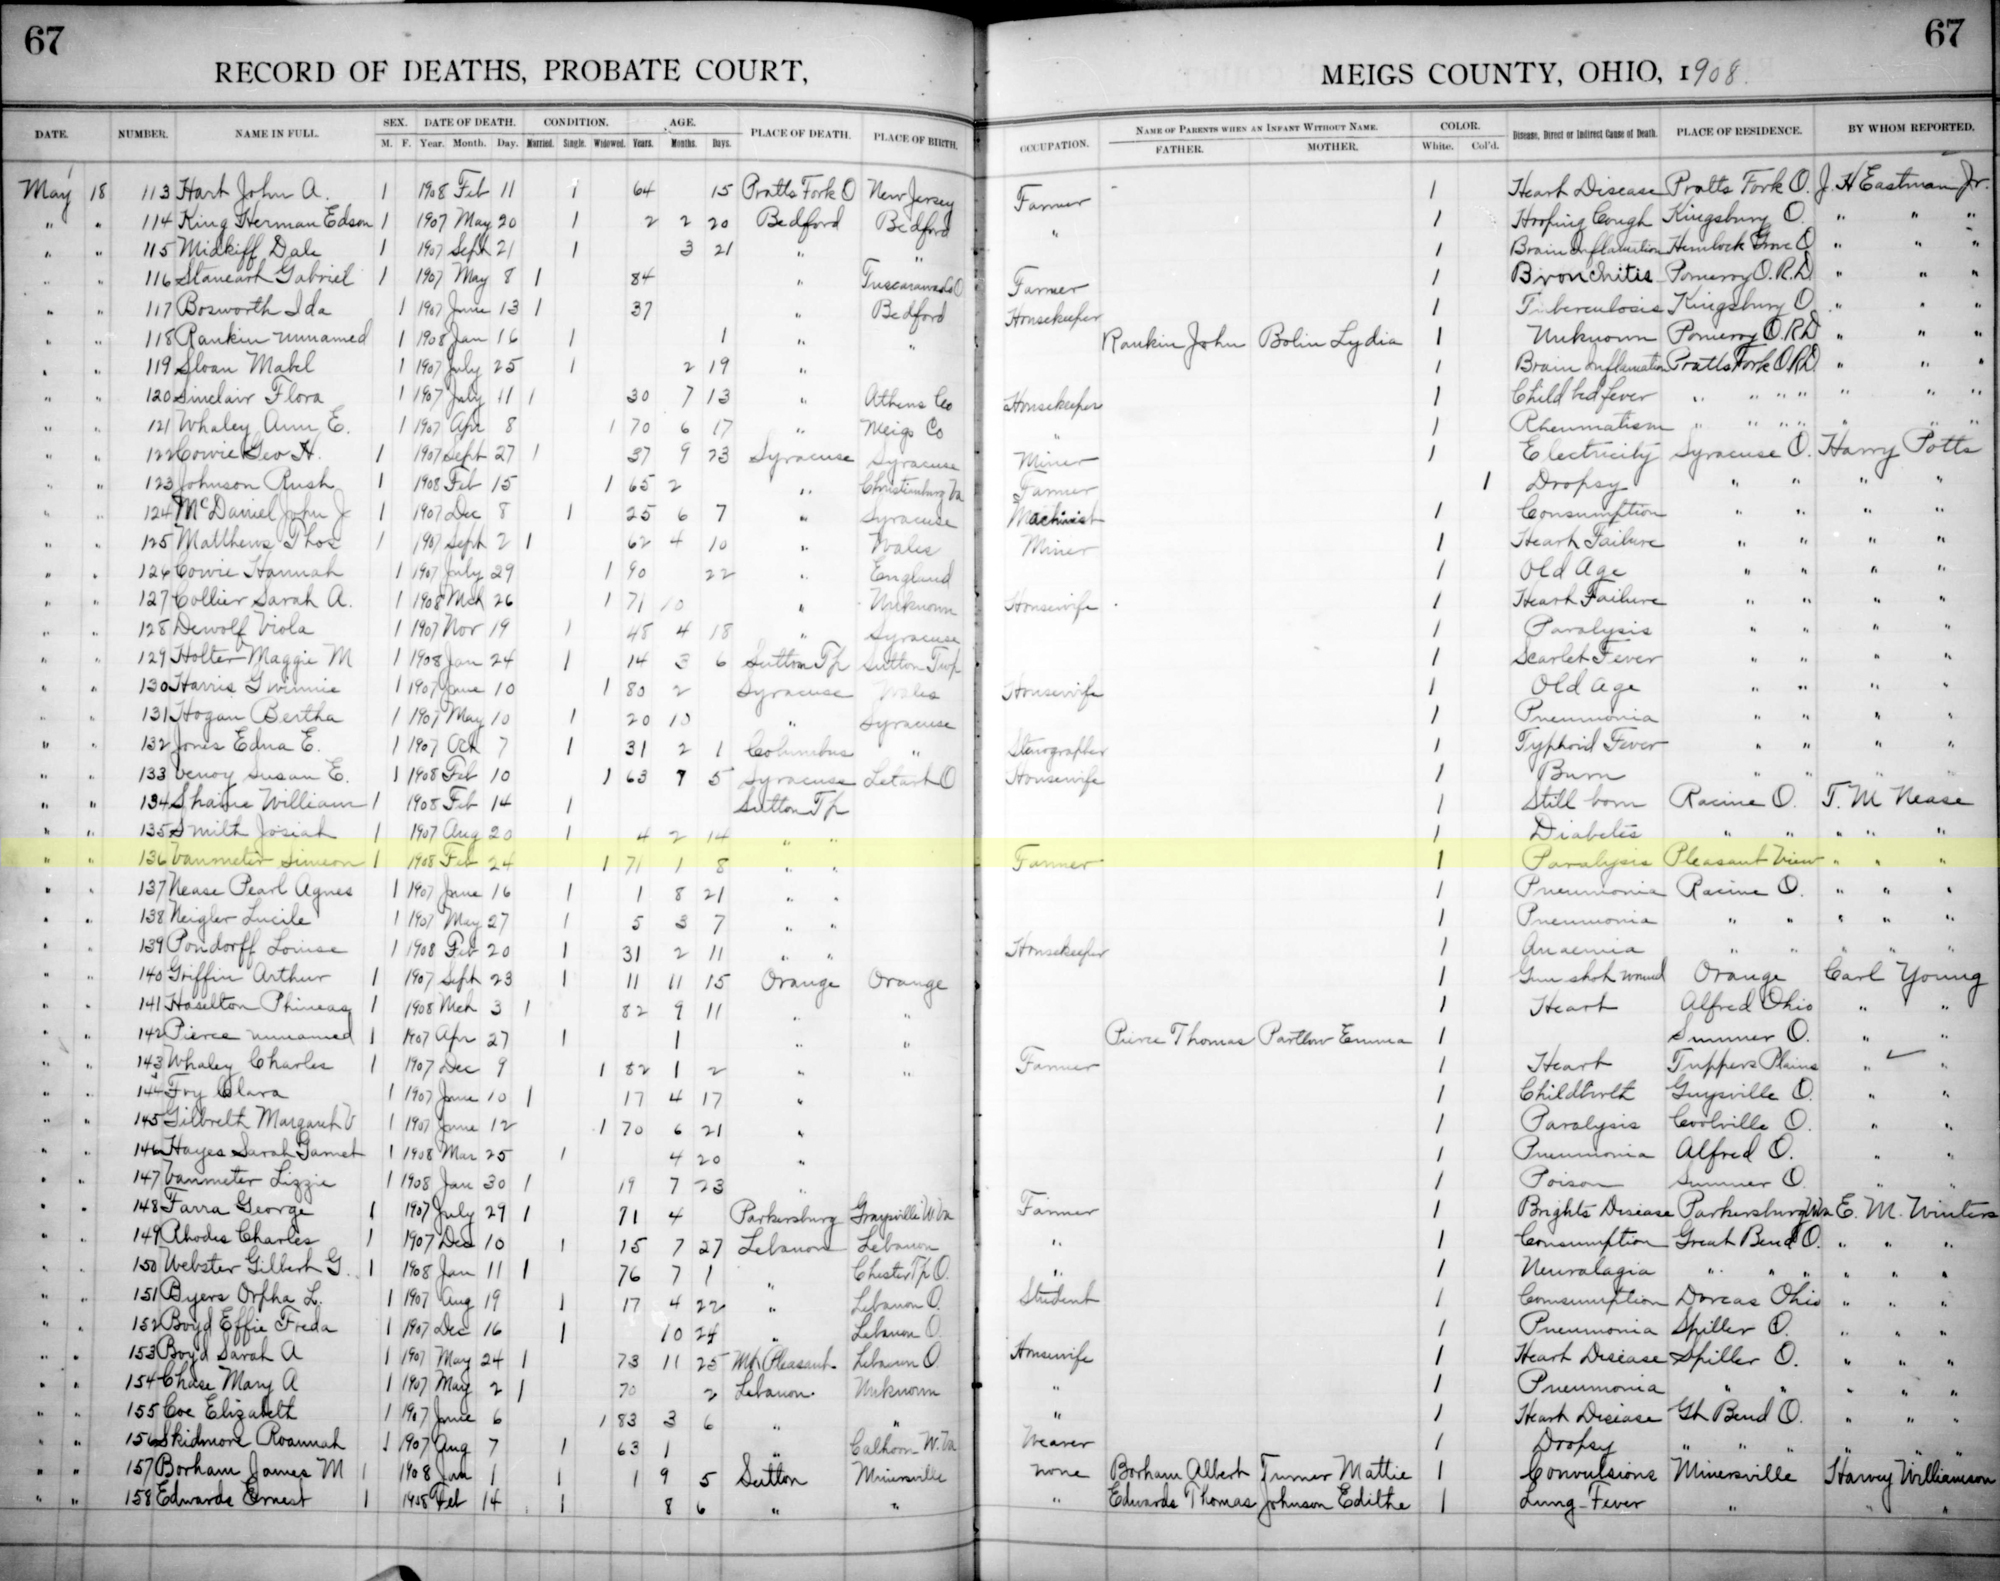 67 67
RECORD OF DEATHS, PROBATE COURT, MEIGS COUNTY, OHIO, 1908.
DATE. NUMBER. NAME IN FULL. SEX. DATE OF DEATH. CONDITION. AGE. PLACE OF DEATH. PLACE OF BIRTH. OCCUPATION. NAME OF PARENTS WHEN AN INFANT WITHOUT NAME. COLOR. Disease, Direct or Indirect Cause of Death. PLACE OF RESIDENCE. BY WHOM REPORTED.
M. F. Year. Month. Day. Married. Single. Widowed. Years. Months. Days. FATHER. MOTHER. White. Col'd.
May 18 113 Hart John A. 1 1908 Feb 11 1 64 15 Pratts Fork O New Jersey Farmer 1 Heart Disease Pratts Fork O. J. H Eastman Jr.
" " 114 King Herman Edson 1 1907 May 20 1 2 2 20 Bedford Bedford " 1 Hooping Cough Kingsbury O. " " "
" " 115 Midkiff Dale 1 1907 Sept 21 1 3 21 " " 1 Brain Inflamation Hemlock Grove O " " "
" " 116 Gabriel 1 1907 May 8 1 84 " Tuscarawas Co O Farmer 1 Bronchitis Pomeroy O. R. D " " "
" " 117 Bosworth Ida 1 1907 June 13 1 37 " Bedford Housekeeper 1 Tuberculosis Kingsbury O. " " "
" " 118 Rankin unnamed 1 1908 Jan 16 1 1 " " Rankin John Bolin Lydia 1 Unknown Pomeroy O. R.D " " "
" " 119 Sloan Mabel 1 1907 July 25 1 2 19 " 1 Brain Inflamation Pratts Fork O R.D " " "
" " 120 Sinclair Flora 1 1907 July 11 1 30 7 13 " Athens Co Housekeeper 1 Child bed fever " " " " " " "
" " 121 Whaley Ann E. 1 1907 Apr 8 1 70 6 17 " Meigs Co " 1 Rheumatism " " " " " " "
" " 122 Cowie Geo H. 1 1907 Sept 27 1 37 9 23 Syracuse Syracuse Miner 1 Electricity Syracuse O. Harry Potts
" " 123 Johnson Rush 1 1908 Feb 15 1 65 2 " Christianburg Va Farmer 1 Dropsy " " " "
" " 124 McDaniel John J 1 1907 Dec 8 1 25 6 7 " Syracuse Machinist 1 Consumption " " " "
" " 125 Matthews Thos 1 1907 Sept 2 1 62 4 10 " Wales Miner 1 Heart Failure " " " "
" " 126 Cowie Hannah 1 1907 July 29 1 90 22 " England 1 Old Age " " " "
" " 127 Collier Sarah A. 1 1908 Mch 26 1 71 10 " Unknown Housewife 1 Heart Failure " " " "
" " 128 Dewolf Viola 1 1907 Nov 19 1 45 4 18 " Syracuse 1 Paralysis " " " "
" " 129 Holter Maggie M 1 1908 Jan 24 1 14 3 6 Sutton Tp Sutton Twp 1 Scarlet Fever " " " "
" " 130 Harris Gwinnie 1 1907 June 10 1 80 2 Syracuse Wales Housewife 1 Old Age " " " "
" " 131 Hogan Bertha 1 1907 May 10 1 20 10 " Syracuse 1 Pneumonia " " " "
" " 132 Jones Edna E. 1 1907 Oct 7 1 31 2 1 Columbus " Stenographer 1 Typhoid Fever " " " "
" " 133 Susan E. 1 1908 Feb 10 1 63 7 5 Syracuse Letart O Housewife 1 Burn " " " "
" " 134 William 1 1908 Feb 14 1 Sutton Tp 1 Still born Racine O. T. M Nease
" " 135 Smith Josiah 1 1907 Aug 20 1 4 2 14 " " 1 Diabetes " " " " "
" " 136 Vanmeter Simeon 1 1908 Feb 24 1 71 1 8 " " Farmer 1 Paralysis Pleasant View " " "
" " 137 Nease Pearl Agnes 1 1907 June 16 1 1 8 21 " " 1 Pneumonia Racine O. " " "
" " 138 Neigler Lucile 1 1907 May 27 1 5 3 7 " " 1 Pneumonia " " " " "
" " 139 Pondorff Louise 1 1908 Feb 20 1 31 2 11 " " Housekeeper 1 Anaemia " " " " "
" " 140 Griffin Arthur 1 1907 Sept 23 1 11 11 15 Orange Orange 1 Gun shot wound Orange Carl Young
" " 141 Haselton Phineas 1 1908 Mch 3 1 82 9 11 " " 1 Heart Alfred Ohio " "
" " 142 Pierce unnamed 1 1907 Apr 27 1 1 " " Pierce Thomas Partlow Emma 1 Summer O. " "
" " 143 Whaley Charles 1 1907 Dec 9 1 82 1 2 " " Farmer 1 Heart Tuppers Plains " "
" " 144 Fry Clara 1 1907 June 10 1 17 4 17 " 1 Childbirth Guysville O. " "
" " 145 Gilbreth Margaret V 1 1907 June 12 1 70 6 21 " 1 Paralysis Coolville O. " "
" " 146 Hayes Sarah Garnet 1 1908 Mar 25 1 4 20 " 1 Pneumonia Alfred O. " "
" " 147 Vanmeter Lizzie 1 1908 Jan 30 1 19 7 23 " 1 Poison Summer O. " "
" " 148 Farra George 1 1907 July 29 1 71 4 Parkersburg Graysville W Va Farmer 1 Brights Disease Parkersburg W Va E. M. Winters
" " 149 Rhodes Charles 1 1907 Dec 10 1 15 7 27 Lebanon Lebanon " 1 Consumption Great Bend O. " " "
" " 150 Webster Gilbert G. 1 1908 Jan 11 1 76 7 1 " Chester Tp O. " 1 Neuralagia " " " " " "
" " 151 Byers Orpha L. 1 1907 Aug 19 1 17 4 22 " Lebanon O. Student 1 Comsumption Dorcas Ohio " " "
" " 152 Boyd Effie Freda 1 1907 Dec 16 1 10 24 " Lebanon O. 1 Pneumonia Spiller O. " " "
" " 153 Boyd Sarah A 1 1907 May 24 1 73 11 25 Mt Pleasant Lebanon O. Housewife 1 Heart Disease Spiller O. " " "
" " 154 Chase Mary A 1 1907 May 2 1 70 2 Lebanon. Unknown " 1 Pneumonia " " " " "
" " 155 Coe Elizabeth 1 1907 June 6 1 83 3 6 " " " 1 Heart Disease Gt Bend O. " " "
" " 156 Skidmore Roannah 1 1907 Aug 7 1 63 1 " Calhoun W. Va Weaver 1 Dropsy " " " " " "
" " 157 Borham James M 1 1908 Jan 1 1 1 9 5 Sutton Minersville none Borham Albert Turner Mattie 1 Convulsions Minersville Harvey Williamson
" " 158 Edwards Ernest 1 1908 Feb 14 1 8 6 " " " Edwards Thomas Johnson Edithe 1 Lung Fever " " "